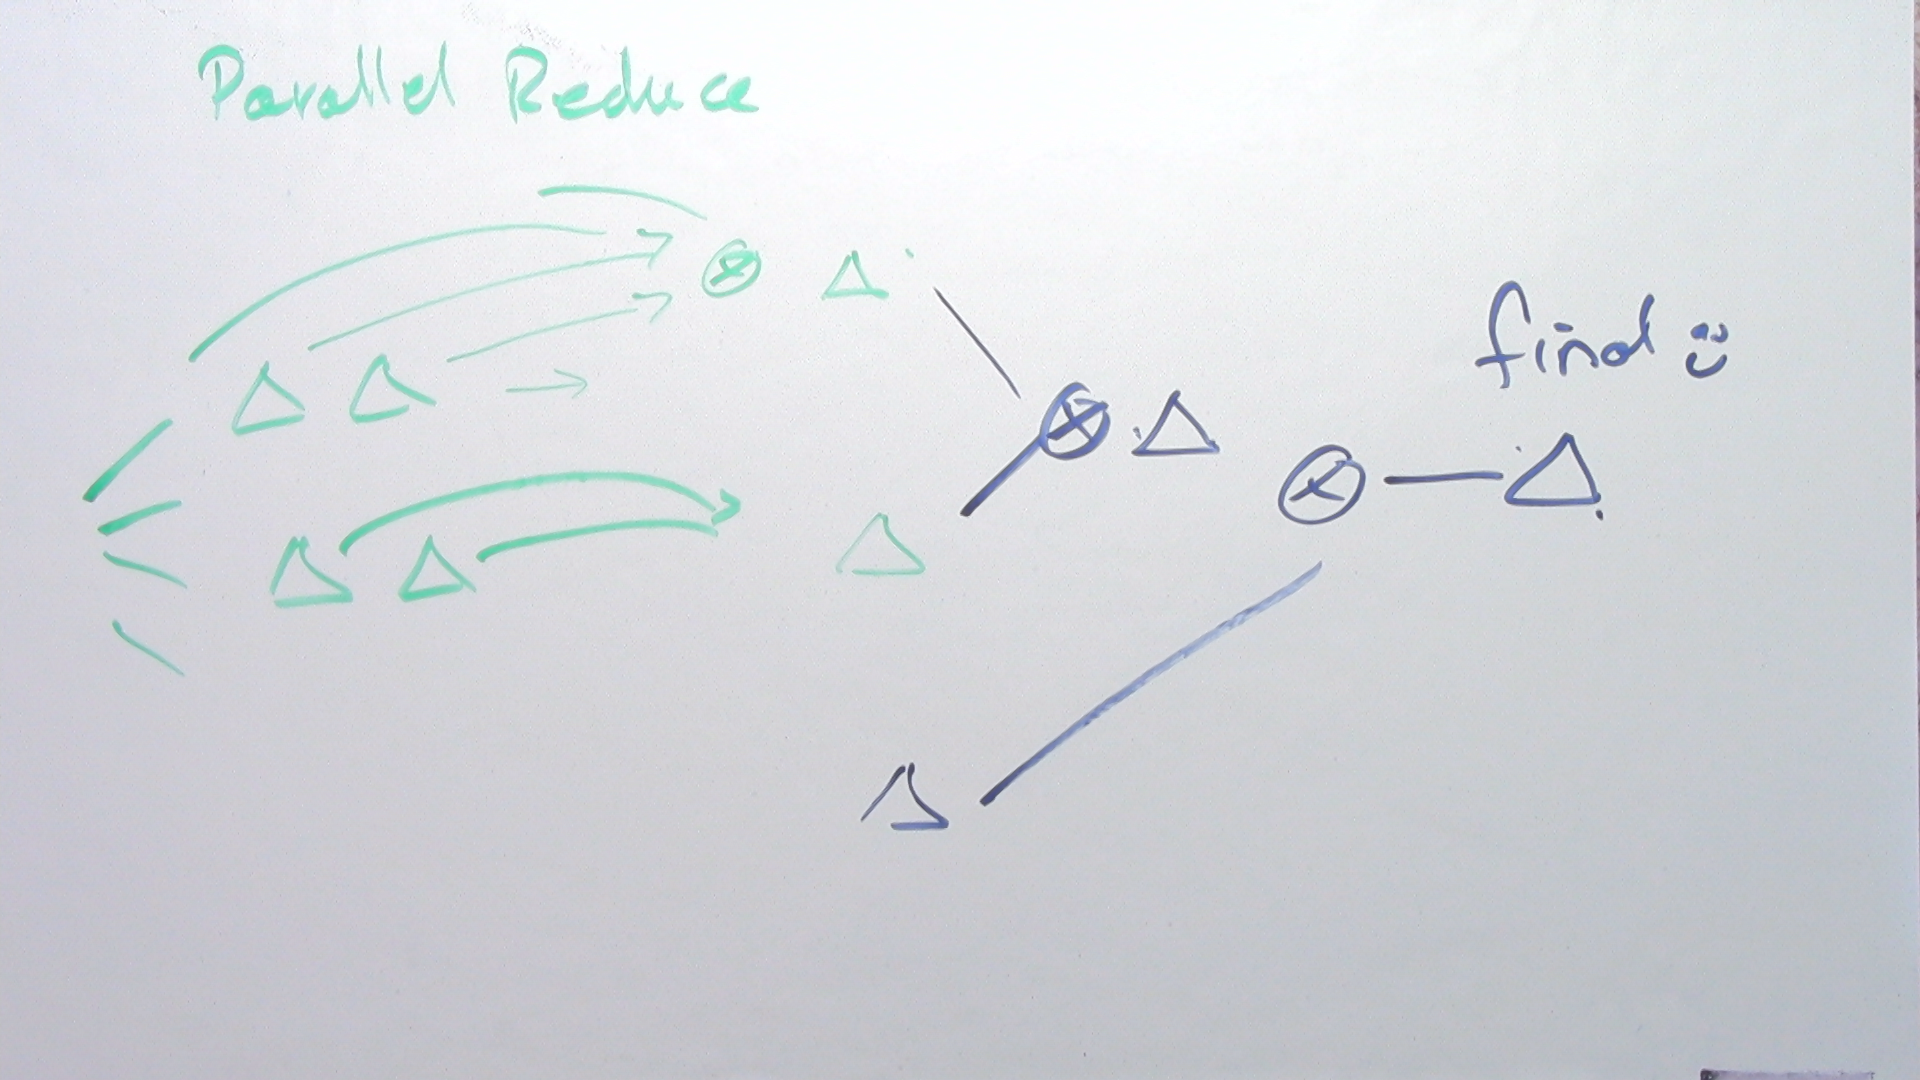 Parallel Reduce
find